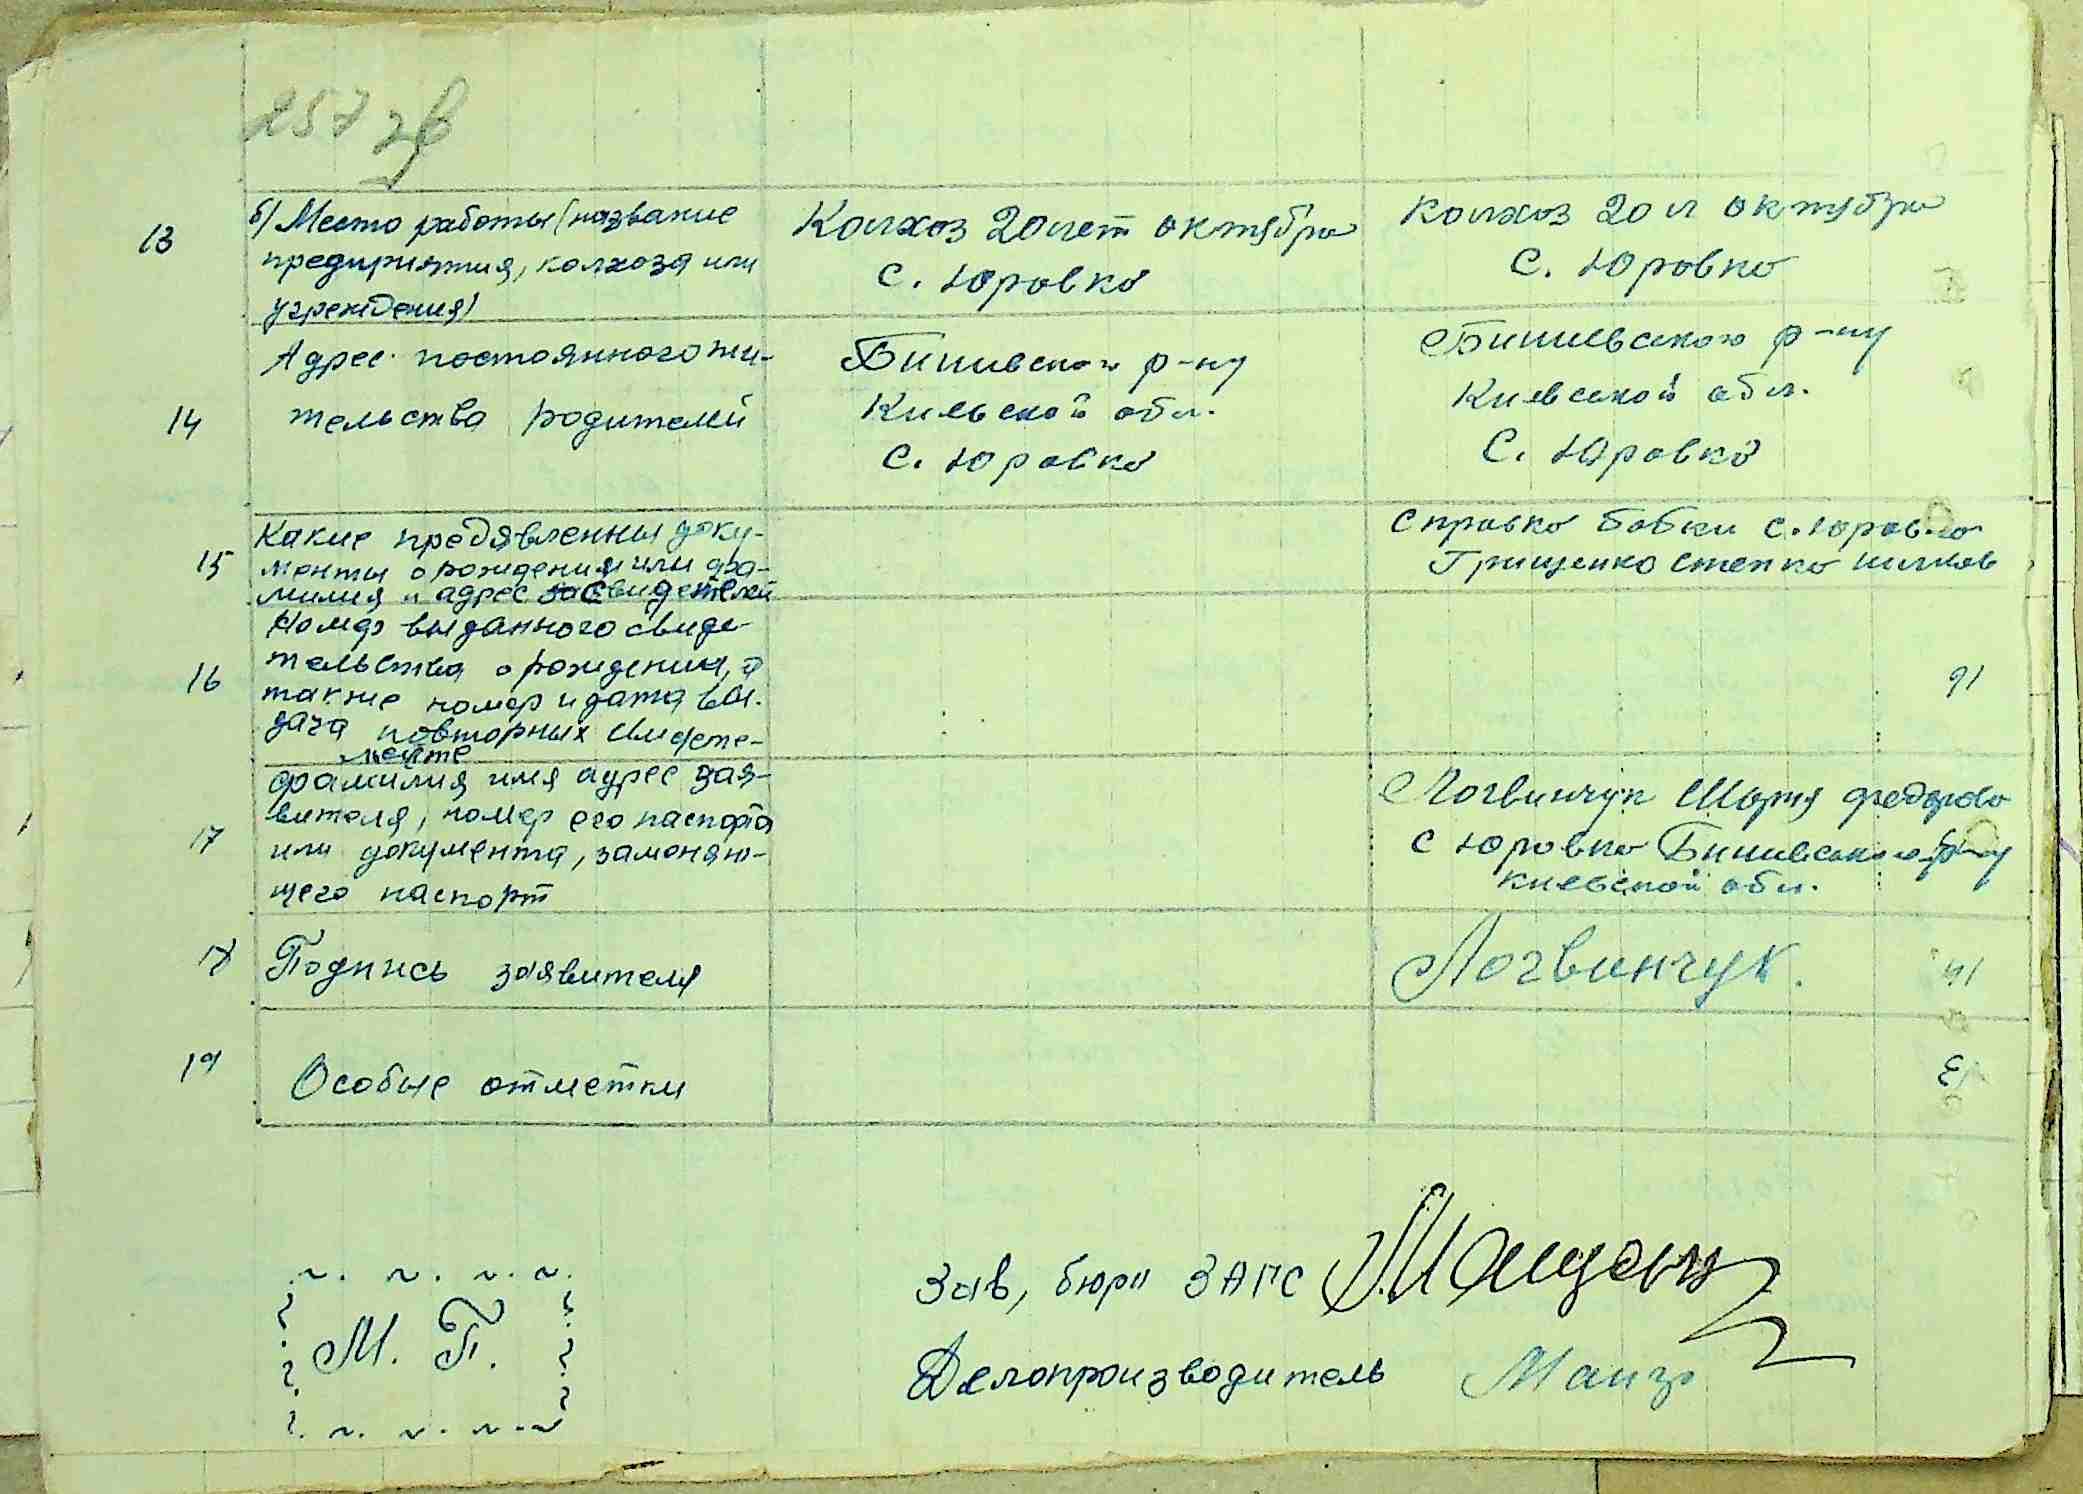 257 зв
13
б) Место работы (название
предприятия, колхоза или
учреждения)
Колхоз 20 лет октября
С. Юровка
Колхоз 20 л октября
С. Юровка
14
Адрес постоянного жи-
тельства родителей
Бишивского р-ну
Киевской обл.
С. Юровка
Бишевского р-ну
Киевской обл.
С. Юровка
15
Какие предявленны доку-
менты о рождении или фа-
милия и адрес свидетелей
Справка бабки с. Юровка
Грищенко Степка
16
Номер выданного свиде-
тельства о рождении, а
также номер и дата вы-
дача повторных свидете-
16
17
фамилия имя адрес зая-
вителя, номер его паспорта
или документа, заменяю-
щего паспорт
Логвинчук Мария федоров
с Юровка Бишивского р-ну
киевской обл.
18
Подпись заявителя
Логвинчук.
19
Особые отметки
Зав, бюро ЗАГС
М. П.
Делопроизводитель